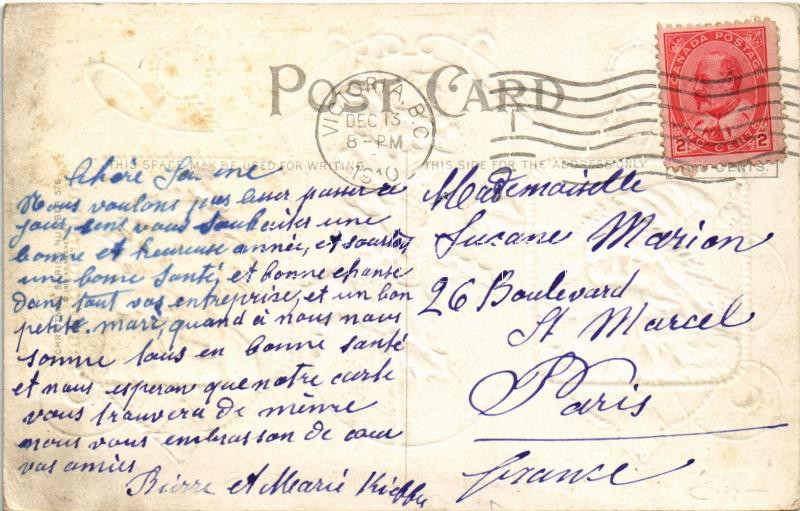 POST CARD
CANADA POSTAGE
TWO CENTS
2 2
VICTORIA, B.C.
DEC 13
8-PM
1910
THIS SPACE MAY BE USED FOR WRITING
THIS SIDE FOR THE ADDRESS ONLY
CENTS.
Chère
Nous voulons pas laser passer ce
jour, sens vous souhaiter une
bonne et heureuse année, et
une bonne santé, et bonne chanse
dans tout vos entreprise, et un bon
petite mari, quand à nous nous
somme tous en bonne santé
et nous esperon que notre carte
vous trouvera de mème
nous vous embrasson de cœur
vos amies
Pierre et Marie
Mademoiselle
Suzane Marion
26 Boulevard
St Marcel
Paris
France